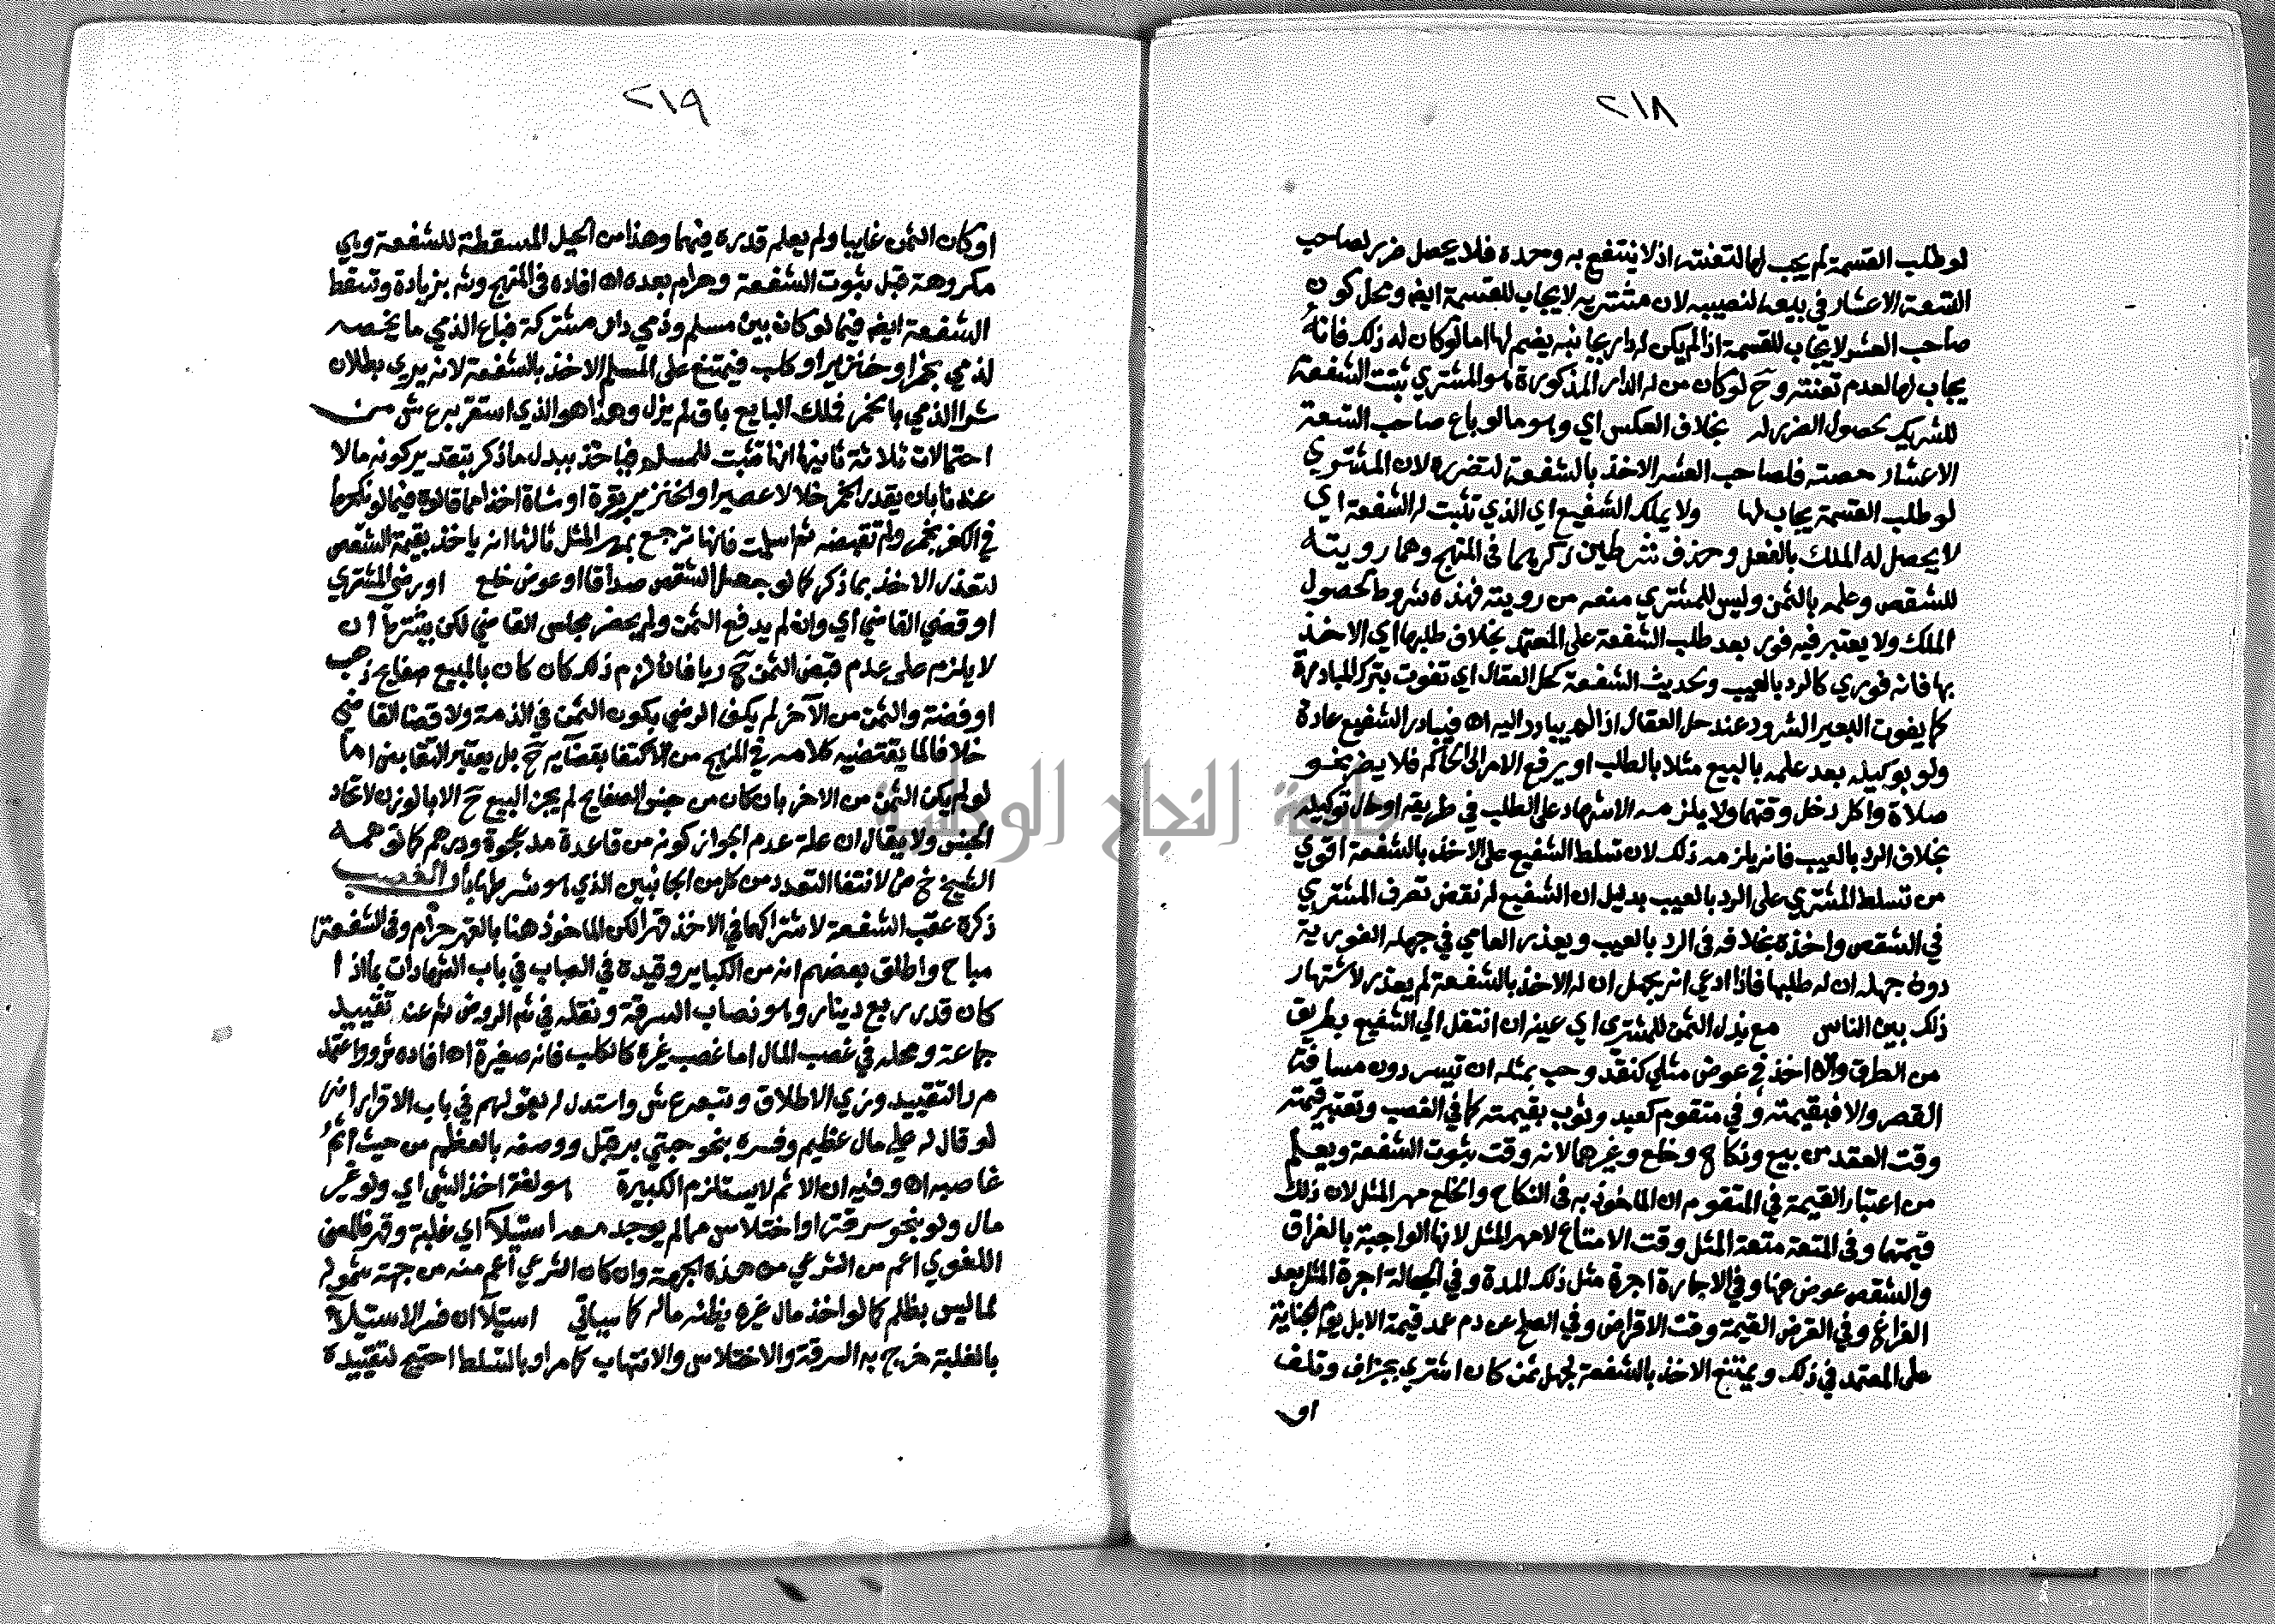 ٢١٨
لو طلب القسمة لم يجب لها لتعنته اذ لا ينتفع به وحده فلا يحصل ضرر لصاحب
التسعة الاعشار في بيعه لنصيبه لان مشتريه لا يجاب للقسمة ايضا ومحل كون
صاحب العشر لا يجاب للقسمة اذا لم يكن له دار بجانبه يضم لها اما لو كان له ذلك فانه
يجاب لها لعدم تعنته وح لو كان من له الدار المذكورة هو المشتري ثبتت الشفعة
للشريك لحصول الضرر له بخلاف العكس اي وهو ما لو باع صاحب التسعة
الاعشار حصته فلصاحب العشر الاخذ بالشفعة لتضرره لان المشتري
لو طلب القسمة يجاب لها ولا يملك الشفيع اي الذي تثبت له الشفعة اي
لا يحصل له الملك بالفعل وحذف شرطين ذكرهما في المنهج وهما رويته
للشقص وعلمه بالثمن وليس للمشتري منعه من رويته فهذه شروط لحصول
الملك ولا يعتبر فيه فور بعد طلب الشفعة على المعتمد بخلاف طلبها اي الاخذ
بها فانه فوري كالرد بالعيب وتحديث الشفعة كحل العقال اي تفوت بترك المبادرة
كما يفوت البعير الشرود عند حل العقال اذا لم يبادر اليه اه فيبادر الشفيع عادة
ولو بوكيله بعد علمه بالبيع مثلا بالطلب او يرفع الامر الى الحاكم فلا يضر نحو
صلاة واكل دخل وقتهما ولا يلزمه الاشهاد على الطلب في طريقه او حال توكيله
بخلاف الرد بالعيب فانه يلزمه ذلك لان تسلط الشفيع على الاخذ بالشفعة اقوي
من تسلط المشتري على الرد بالعيب بدليل ان الشفيع له نقض تصرف المشتري
في الشقص واخذه بخلافه في الرد بالعيب ويعذر العامي في جهله الفورية
دون جهله ان له طلبها فاذا ادعي انه يجهل ان له الاخذ بالشفعة لم يعذر لاشتهار
ذلك بين الناس مع بذل الثمن للمشتري اي عينه ان انتقل الي الشفيع بطريق
من الطرق والا اخذ في عوض مثلي كنقد وحب بمثله ان تيسر دون مسافة
القصر والا فبقيمته وفي متقوم كعبد وثوب بقيمته كما في الغصب وتعتبر قيمته
وقت العقد من بيع ونكاح وخلع وغيرهما لانه وقت ثبوت الشفعة ويعلم
من اعتبار القيمة في المتقوم ان الماخوذ به في النكاح والخلع مهر المثل لان ذلك
قيمتها وفي المتعة متعة المثل وقت الامتاع لا مهر المثل لانها الواجبة بالفراق
والشقص عوض عنها وفي الاجارة اجرة مثل ذلك المدة وفي الجعالة اجرة المثل بعد
الفراغ وفي القرض القيمة وقت الاقراض وفي الصلح عن دم عمد قيمة الابل يوم الجناية
على المعتمد في ذلك ويمتنع الاخذ بالشفعة لجهل ثمن كان اشتري بجزاف وتلف
او
٢١٩
او كان الثمن غايبا ولم يعلم قدره فيهما وهذا من الحيل المسقطة للشفعة وهي
مكروهة قبل ثبوت الشفعة وحرام بعده اه افاده في المنهج وشه بزيادة وتسقط
الشفعة ايضا فيما لو كان بين مسلم وذمي دار مشتركة فباع الذمي ما يخصه
لذمي بخمر او خنزير او كلب فيمتنع على المسلم الاخذ بالشفعة لانه يري بطلان
شرا الذمي بالخمر فملك البايع باق لم يزل وهذا هو الذي استقر به ع ش من
احتمالات ثلاثة ثانيها انها تثبت للمسلم فياخذ ببدل ما ذكر بتقدير كونه مالا
عندنا بان يقدر الخمر خلا لا عصيرا والخنزير بقرة او شاة اخذا مما قالوه فيما لو نكحها
في الكفر بخمر ولم تقبضه ثم اسلمت فانها ترجع بمهر المثل ثالثها انه ياخذ بقيمة الشقص
لتعذر الاخذ بما ذكر كما لو جعل الشقص صداقا او عوض خلع او رضي المشتري
او قضي القاضي اي وان لم يدفع الثمن ولم يحضر مجلس القاضي لكن يشترط ان
لا يلزم على عدم قبض الثمن ح ربا فان لزم ذلك كان كان بالمبيع صفايح ذهب
او فضة والثمن من الآخر لم يكف الرضي بكون الثمن في الذمة ولا قضا القاضي
خلافا لما يقتضيه كلامه في المنهج من الاكتفا بقضايه ح بل يعتبر التقابض اما
لو لم يكن الثمن من الاخر بان كان من جنس الصفايح لم يجز البيع ح الا بالوزن لاتحاد
الجنس ولا يقال ان علة عدم الجواز كونه من قاعدة مد عجوة ودرهم كما توهمه
الشيخ خ ض لانتفا التعدد من كل من الجانبين الذي هو شرطها باب الغصب
ذكره عقب الشفعة لاشتراكهما في الاخذ قهرا لكن الماخوذ هنا بالقهر حرام وفي الشفعة
مباح واطلق بعضهم انه من الكباير وقيده في العباب في باب الشهادات بما اذا
كان قدر ربع دينار وهو نصاب السرقة ونقله في شه الروض ثم عند تقييد
جماعة ومحله في غصب المال اما غصب غيره كالكلب فانه صغيرة اه افاده واعتمد
م ر التقييد وزي الاطلاق وتبعه ع ش واستدل له بقولهم في باب الاقرار انه
لو قال له علي مال عظيم وفسره بنحو حبتي بر قبل ووصفه بالعظم من حيث اثم
غاصبه اه وفيه ان الاثم لا يستلزم الكبيرة هو لغة اخذ الشي اي ولو غير
مال ولو بنحو سرقة او اختلاس مما لم يوجد معه استيلآ اي غلبة وقهر فالمعني
اللغوي اعم من الشرعي من هذه الجهة وان كان الشرعي اعم منه من جهة شموله
لما ليس بظلم كما لو اخذ مال غيره يظنه ماله كما سياتي استيلآ ان فسر الاستيلآ
بالغلبة خرج به السرقة والاختلاس والانتهاب كما مر او بالتسلط احتيج لتقييده